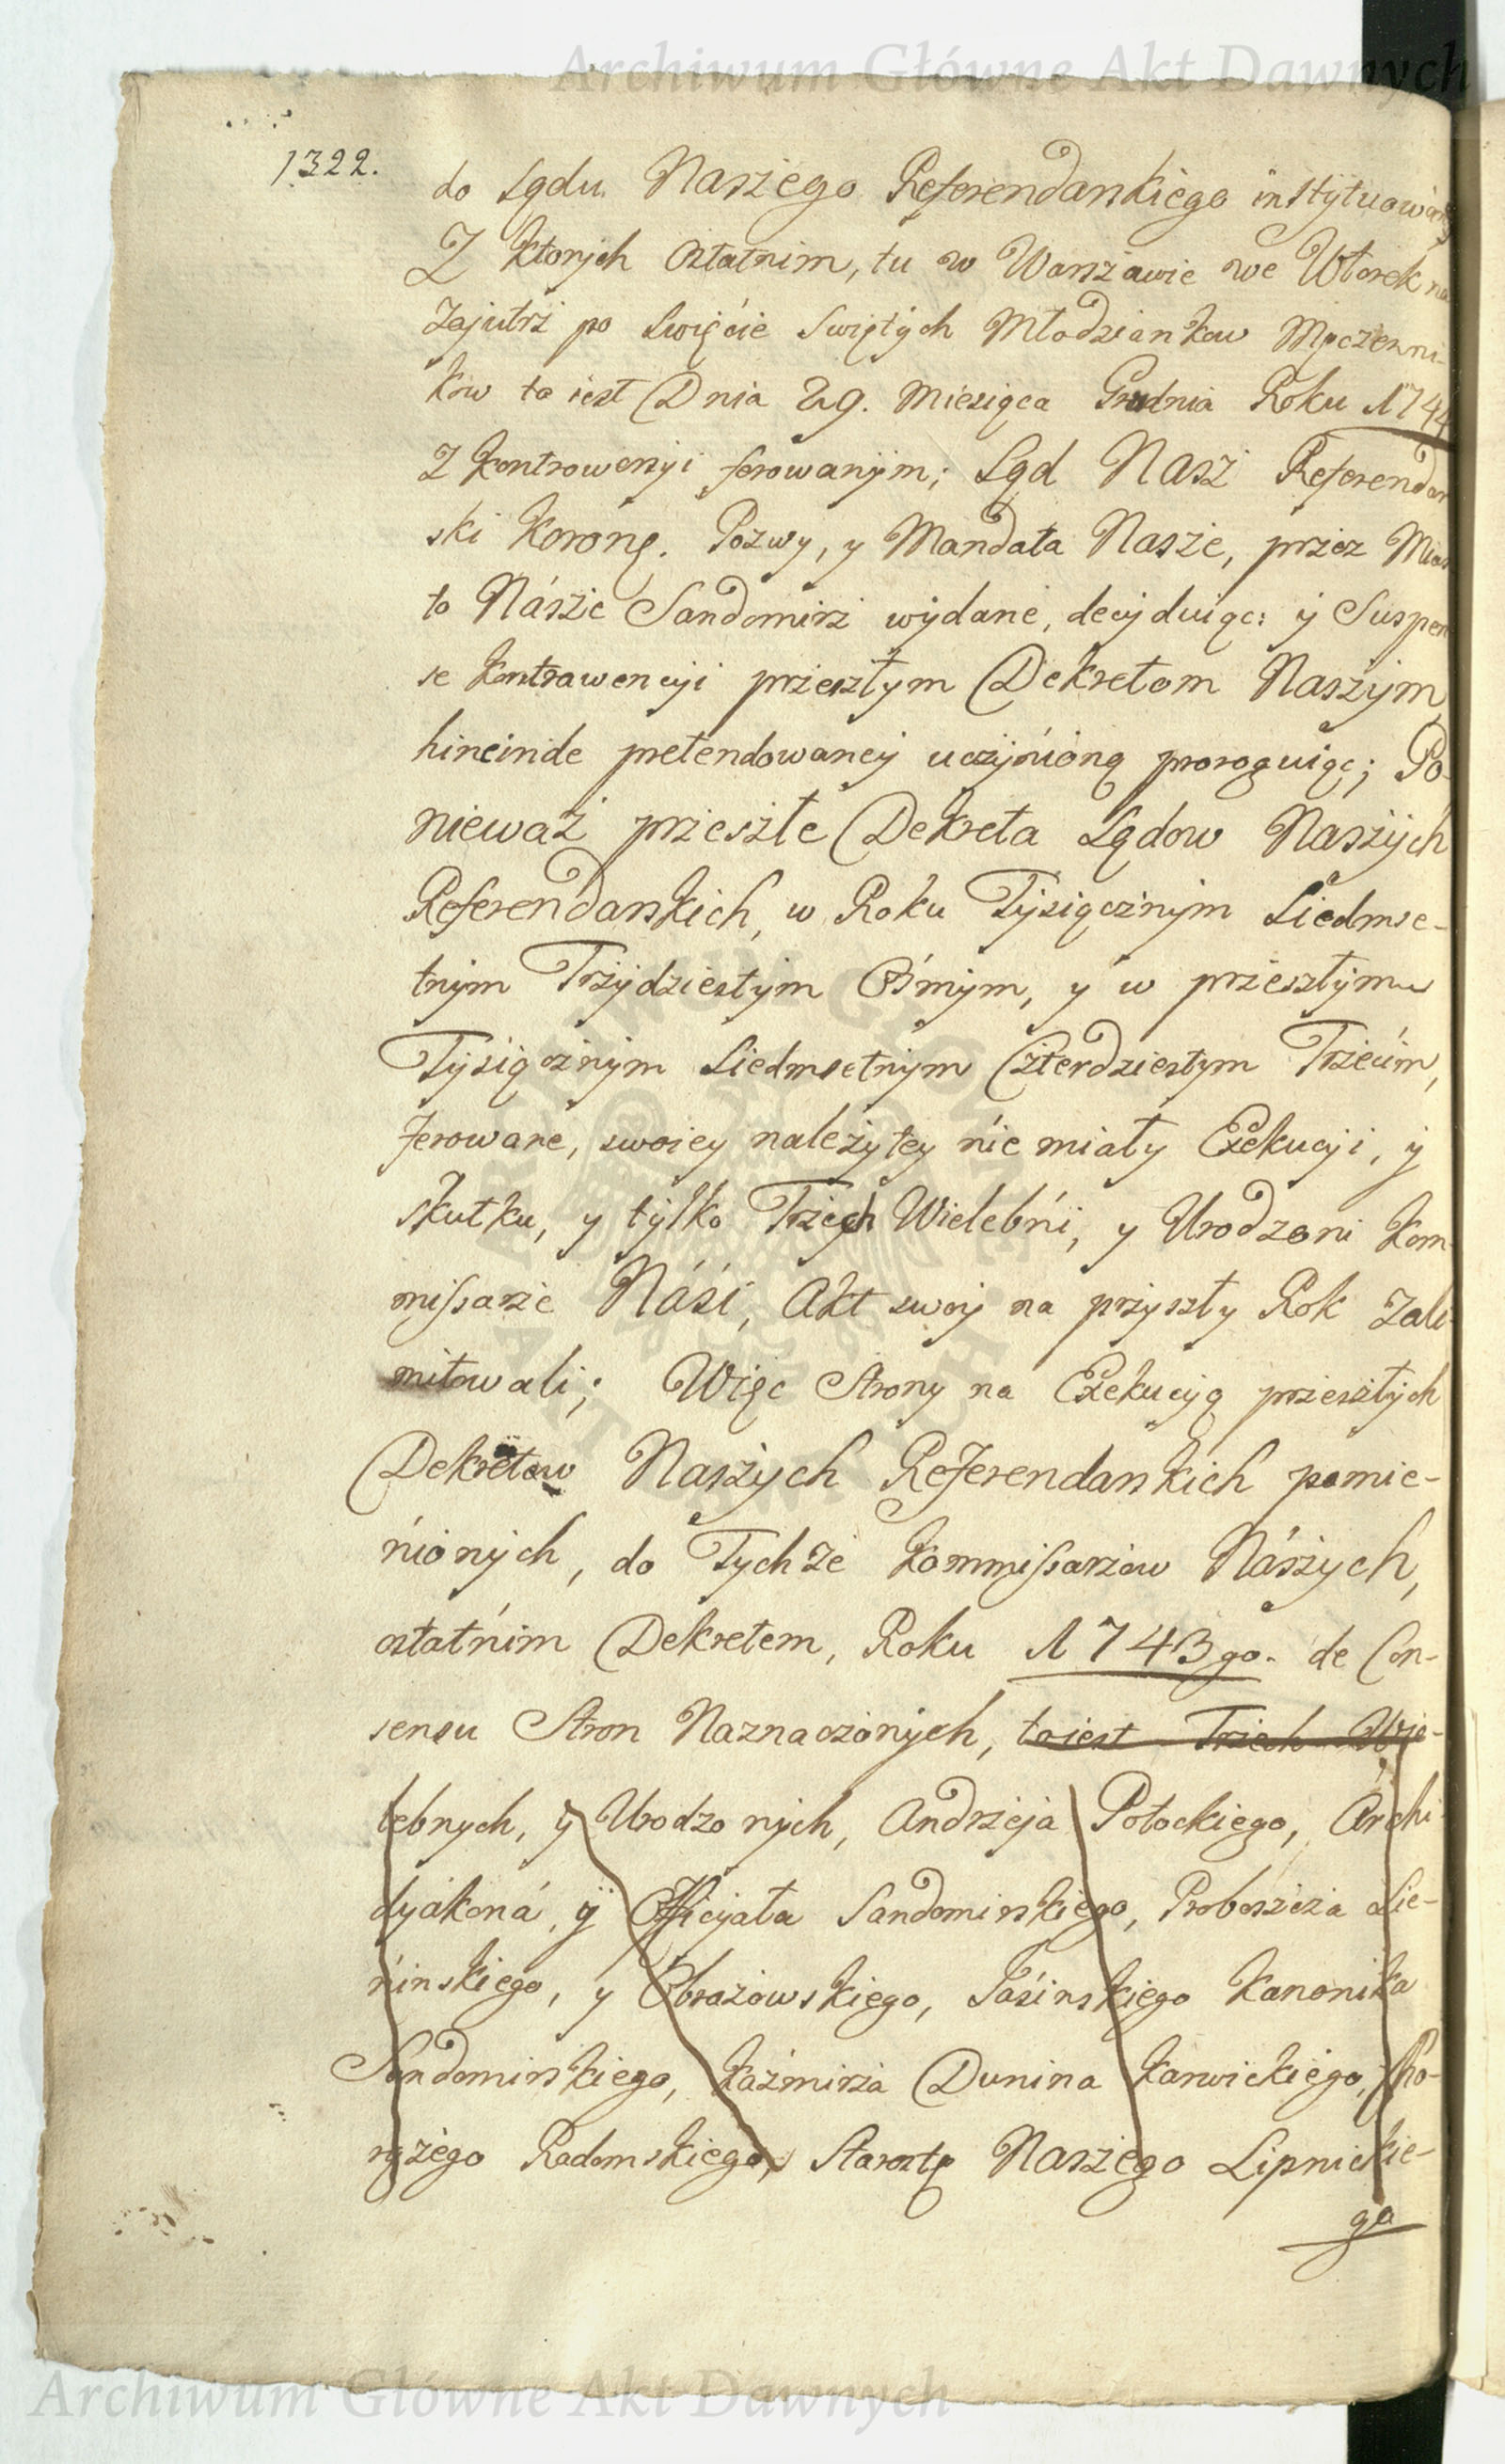 Archiwum Główne Akt Dawnych
1322.
do Sądu Naszego Referendarskiego instytuowa
Z ktorych ostatnim, tu w Warszawie we Wtorek na
zajutrz po Swięcie Swiętych Młodziankow Męczenni-
kow to iest Dnia 29. Miesiąca Grudnia Roku 1744
z kontrowersyi ferowanym; Sąd Nasz Referendar
ski Koronę. Pozwy, y Mandata Nasze, przez Mias
to Násze Sandomirz wydane, decyduiąc: y Suspen
se kontrawencyi przeszłym Dekretom Naszym
hincinde pretendowaney uczynioną proroguiąc; Po-
nieważ przeszłe Dekreta Sądow Naszych
Referendarskich, w Roku Tysiącznym Siedmse-
tnym Trzydziestym Osmym, y w przeszłym
Tysiącznym Siedmsetnym Czterdziestym Trzecim,
ferowane, swoiey należytey nie miały Exekucyi, y
skutku, y tylko Trzech Wielebni, y Urodzeni Kom
missarze Náśi, Akt swoy na przyszły Rok zali-
mitowali; Więc Strony na Exekucyą przeszłych
Dekretow Naszych Referendarskich pomie-
nionych, do Tychże Kommissarzow Nászych,
ostatnim Dekretem, Roku 1743go. de Con-
sensu Stron Naznaczonych, toiest Trzech Wie-
lebnych, y Urodzonych, Andrzeja Potockiego, Archi
dyakoná, y Officyała Sandomirskiego, Proboszcza Sie-
ninskiego, y Obrazowskiego, Jasinskiego Kanonika
Sandomirskiego, Kaźmirza Dunina Karwickiego, Cho-
rążego Radomskiego, Starostę Naszego Lipnickie-
go
Archiwum Główne Akt Dawnych